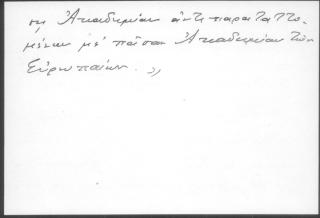 της Ἀκαδημίαν ἀντιπαραταττο-
μένων μέ πᾶσαν Ἀκαδημίαν τῶν
Εὐρωπαίων. »